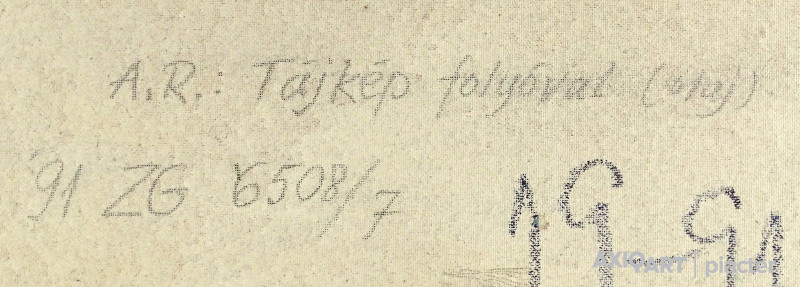 A.R.: Tájkép folyóval (olaj)
'91 ZG 6508/7
1991
AXIOART | piactér